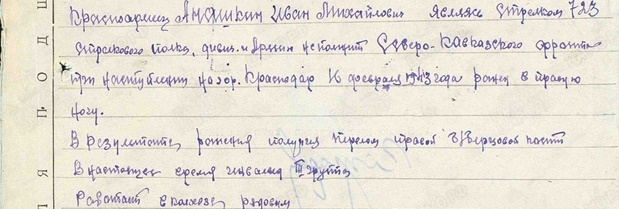 Красноармеец Анашкин Иван Михайлович являясь стрелком 723
стрелкового полка, дивиз. и Армии не помнит Северо-Кавказского фронта
при наступлении на гор. Краснодар 16 февраля 1943 года ранен в правую
ногу.
В результате ранения получил перелом правой б/берцовой кости
В настоящее время инвалид III группы
Работает в колхозе рядовым